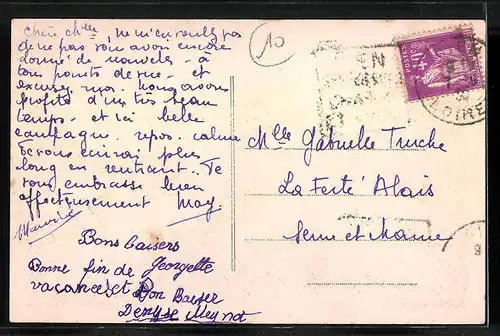 chère Mlle, ne m'en voulez pas
de ne pas vous avoir encore
donné de nouvelles - à
tous points de vue - et
excusez moi. Nous avons
profité d'un très beau
temps - et ici belle
campagne. repos. calme
Je vous écrirai plus
long en rentrant. Je
vous embrasse bien
affectueusement May.
Bons baisers
Georgette
Bonne fin de
vacances et Bon Baiser
Denyse Meynot
10
EN
LOIRE
Mlle Gabrielle Truche
La Ferté Alais
Seine et Marne